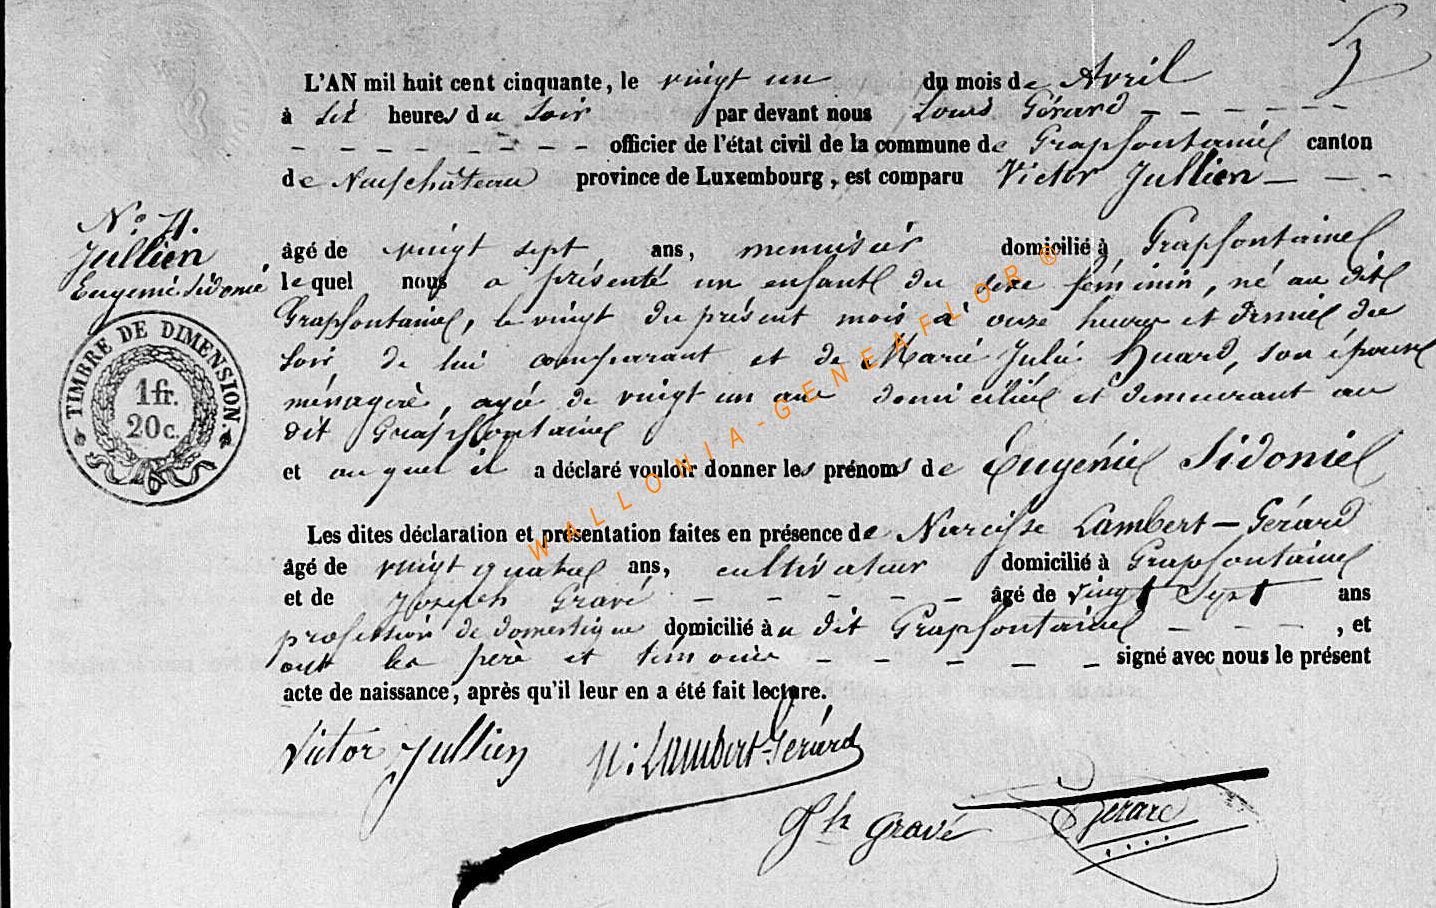 5
L'AN mil huit cent cinquante, le vingt un du mois de Avril
à six heures du soir par devant nous Louis Gérard – – – – – –
– – – – – – – – officier de l'état civil de la commune de Grapfontaine canton
de Neufchâteau province de Luxembourg, est comparu Victor Jullien – – –
N° 11.
Jullien
Eugénie Sidonie
âgé de vingt sept ans, menuisier domicilié à Grapfontaine
lequel nous a présenté un enfant du sexe féminin, né au dit
Grapfontaine, le vingt du présent mois à onze heures et demie du
soir de lui comparant et de Marie Julie Huard, son épouse
ménagère, agée de vingt un ans domiciliée et demeurant au
dit Grapfontaine
et auquel il a déclaré vouloir donner les prénoms de Eugénie Sidonie
TIMBRE DE DIMENSION.
1 fr.
20 c.
Les dites déclaration et présentation faites en présence de Narcisse Lambert–Gérard
âgé de vingt quatre ans, cultivateur domicilié à Grapfontaine
et de Joseph Gravé – – – – – âgé de vingt sept ans
profession de domestique domicilié au dit Grapfontaine – – – , et
ont les père et témoins – – – – – signé avec nous le présent
acte de naissance, après qu'il leur en a été fait lecture.
Victor Jullien N: Lambert-Gérard
Jph Gravé Gerard
WALLONIA-GENEAFLOR®